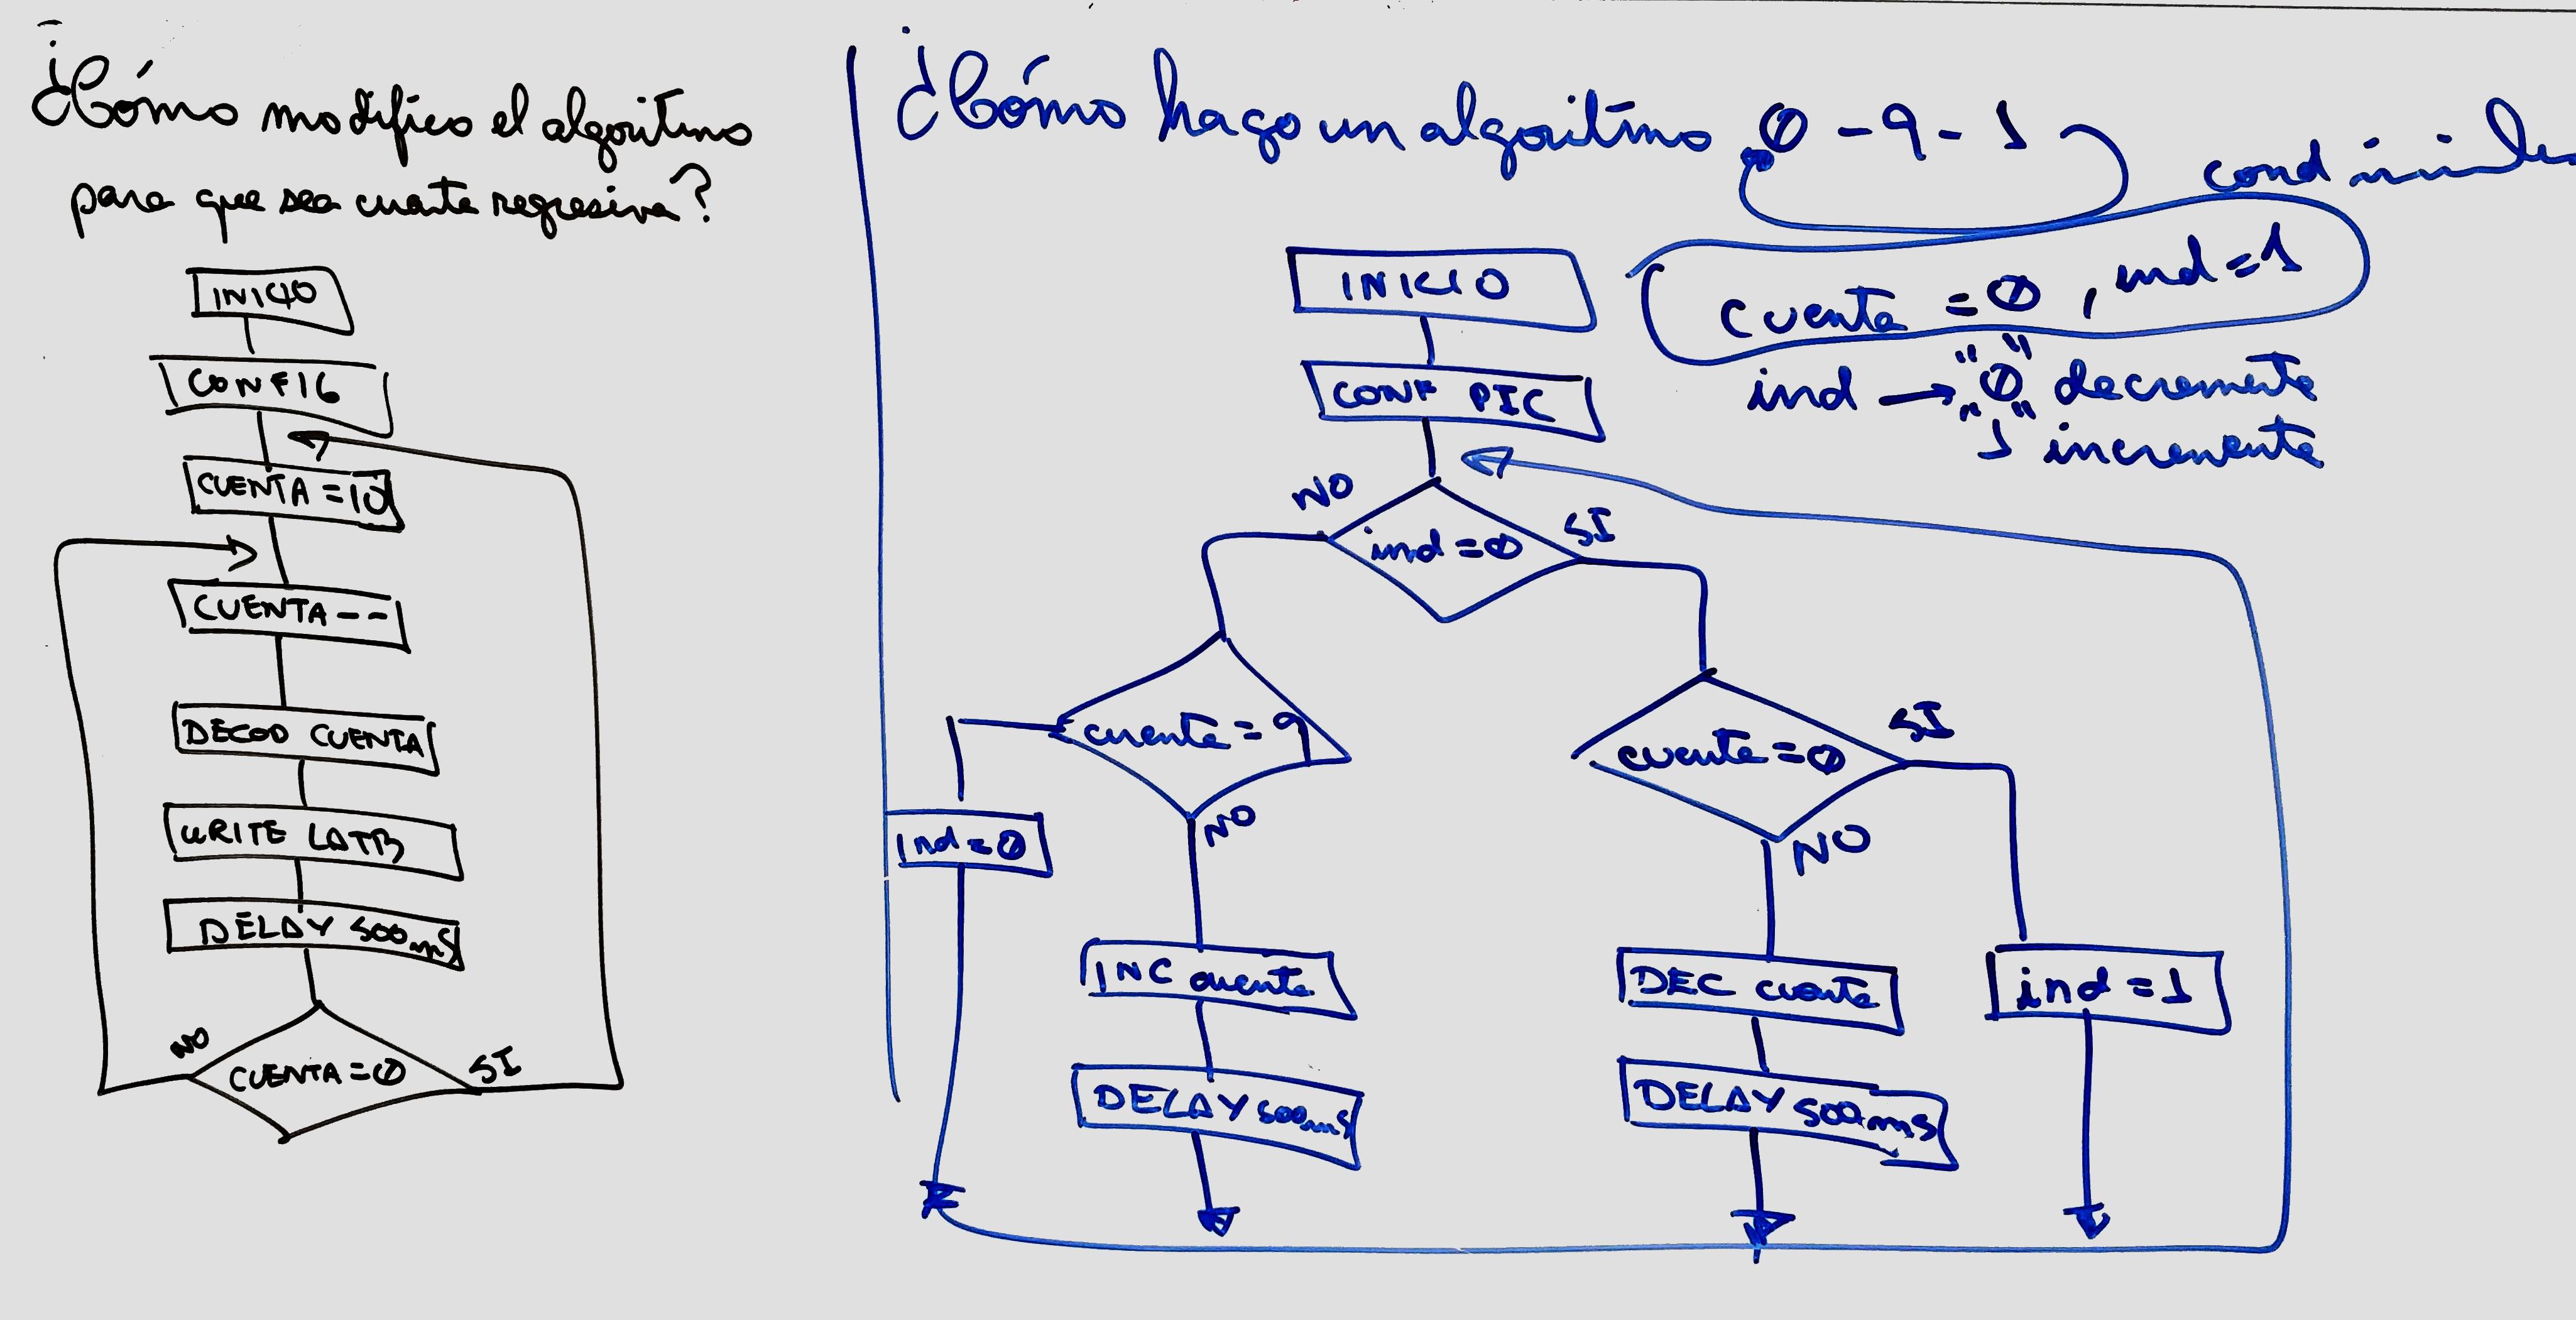 ¿Cómo modifico el algoritmo
para que sea cuenta regresiva?
INICIO
CONFIG
CUENTA = 10
CUENTA--
DECOD CUENTA
WRITE LATB
DELAY 500mS
NO
CUENTA = 0
SI
¿Cómo hago un algoritmo 0 - 9 - 1
cond iniciales
cuenta = 0, ind = 1
ind → "0" decremente
"1" incremente
INICIO
CONF PIC
NO
ind = 0
SI
cuenta = 9
NO
ind = 0
INC cuenta
DELAY 500mS
cuenta = 0
SI
NO
DEC cuenta
DELAY 500mS
ind = 1